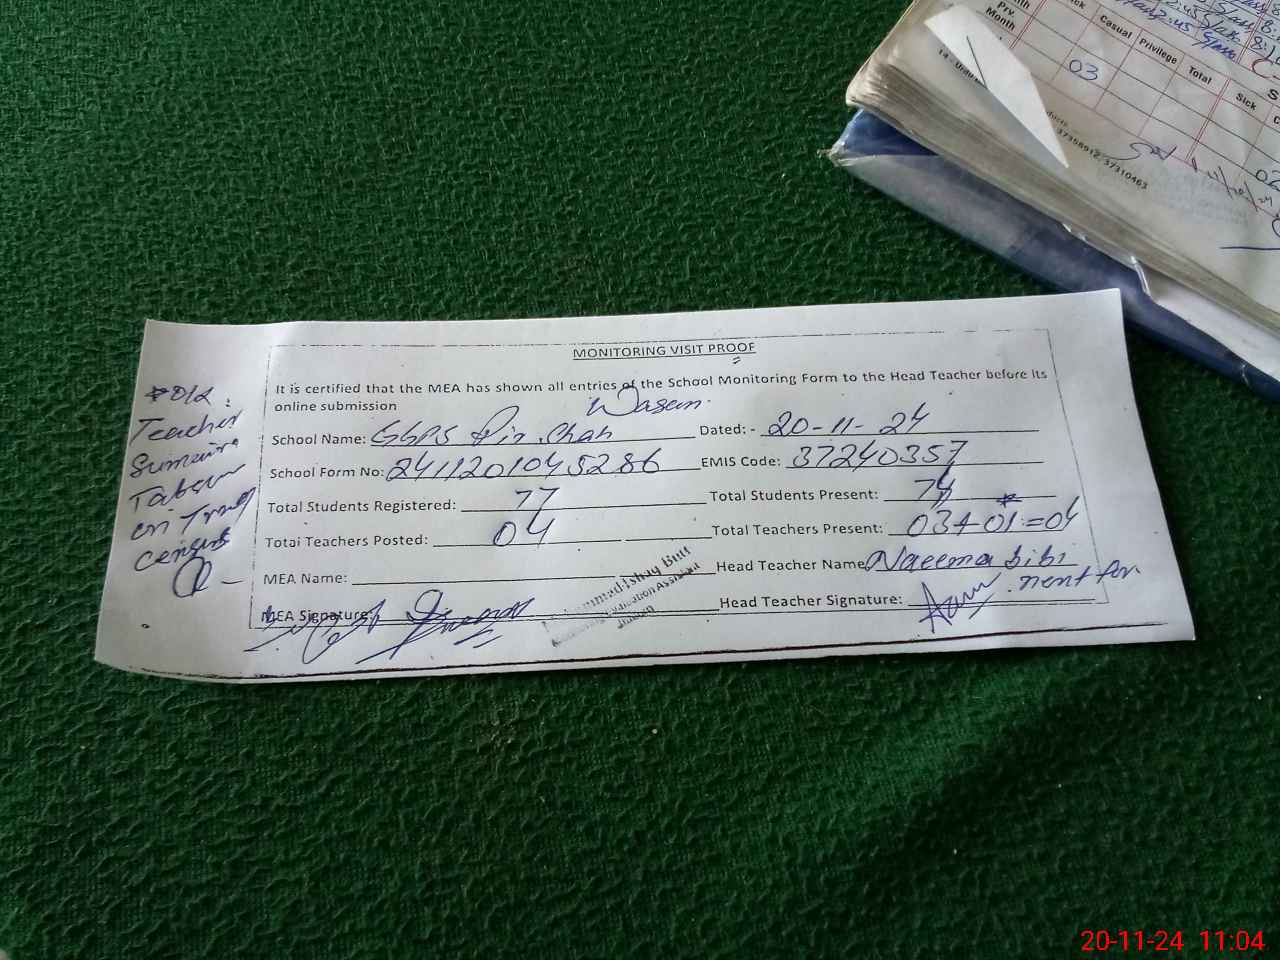 Prv.
Month
Casual
Privilege
Total
Sick
03
02
37358912, 37310463
MONITORING VISIT PROOF
It is certified that the MEA has shown all entries of the School Monitoring Form to the Head Teacher before its
online submission
School Name: GGPS Pir Shah Wasan Dated: - 20-11-24
School Form No: 2411201045286 EMIS Code: 37240357
Total Students Registered: 77 Total Students Present: 74
Total Teachers Posted: 04 Total Teachers Present: 03+01*=04
MEA Name: Head Teacher Name Naeema bibi
MEA Signature: Head Teacher Signature:
nent for
Teacher
Sumaira
on
census
20-11-24 11:04